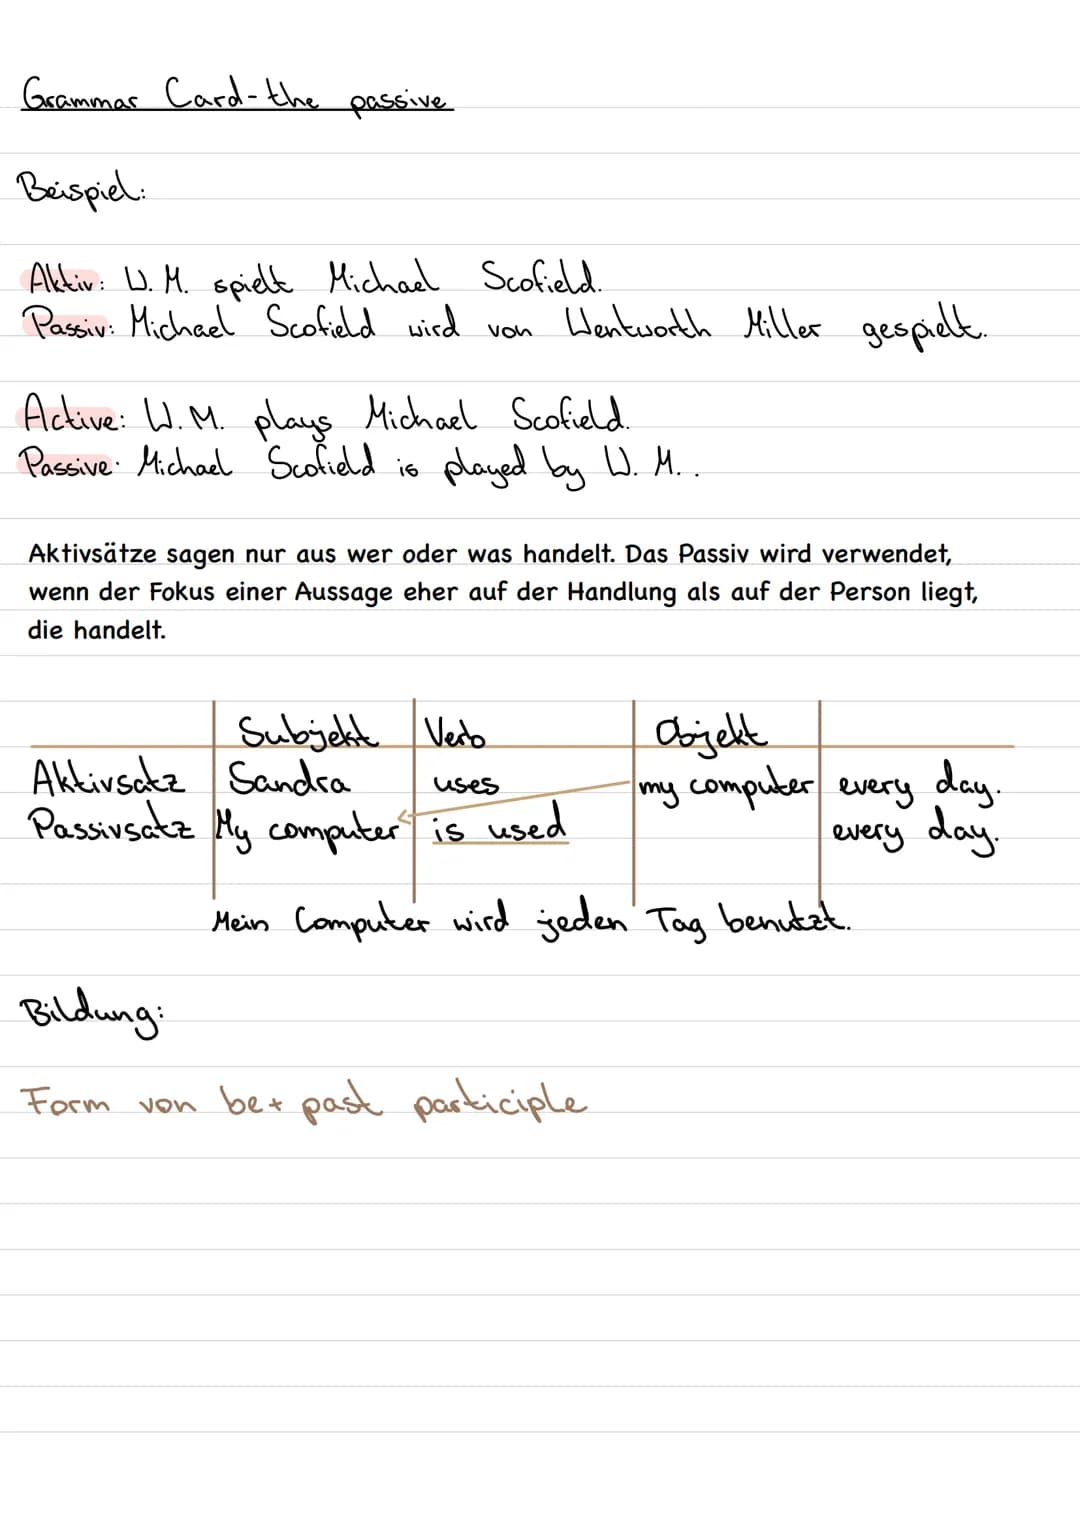 Grammar Card-the passive
Beispiel:
Aktiv: W. M. spielt Michael Scofield.
Passiv: Michael Scofield wird von Wentworth Miller gespielt.
Active: W. M. plays Michael Scofield.
Passive: Michael Scofield is played by W. M. .
Aktivsätze sagen nur aus wer oder was handelt. Das Passiv wird verwendet,
wenn der Fokus einer Aussage eher auf der Handlung als auf der Person liegt,
die handelt.
Subjekt Verb Objekt
Aktivsatz Sandra uses my computer every day.
Passivsatz My computer is used every day.
Mein Computer wird jeden Tag benutzt.
Bildung:
Form von be+ past participle